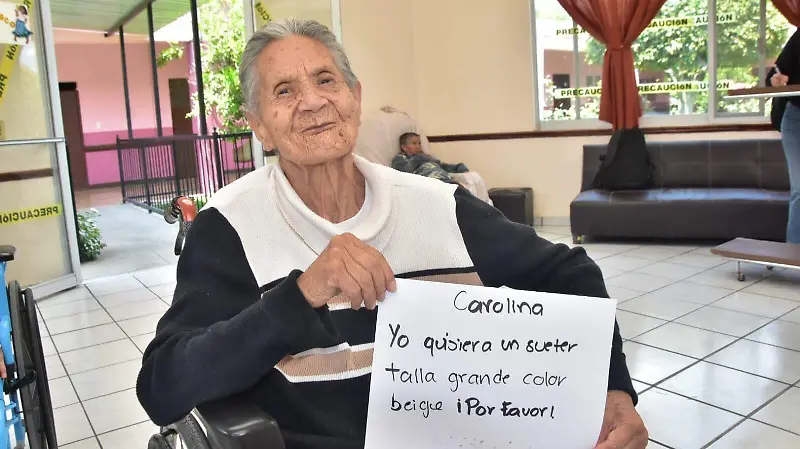 PRECAUCIÓN
PRECAUCIÓN
PRECAUCIÓN
PRECAUCIÓN
PRECAUCIÓN
Carolina
Yo quisiera un sueter
talla grande color
beigue ¡Por favor!